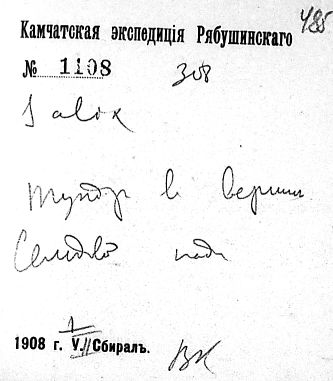 485
Камчатская экспедицiя Рябушинскаго
№ 1108 308
Salix
Тундр в верши
1
1908 г. V.//Сбиралъ.
ВК